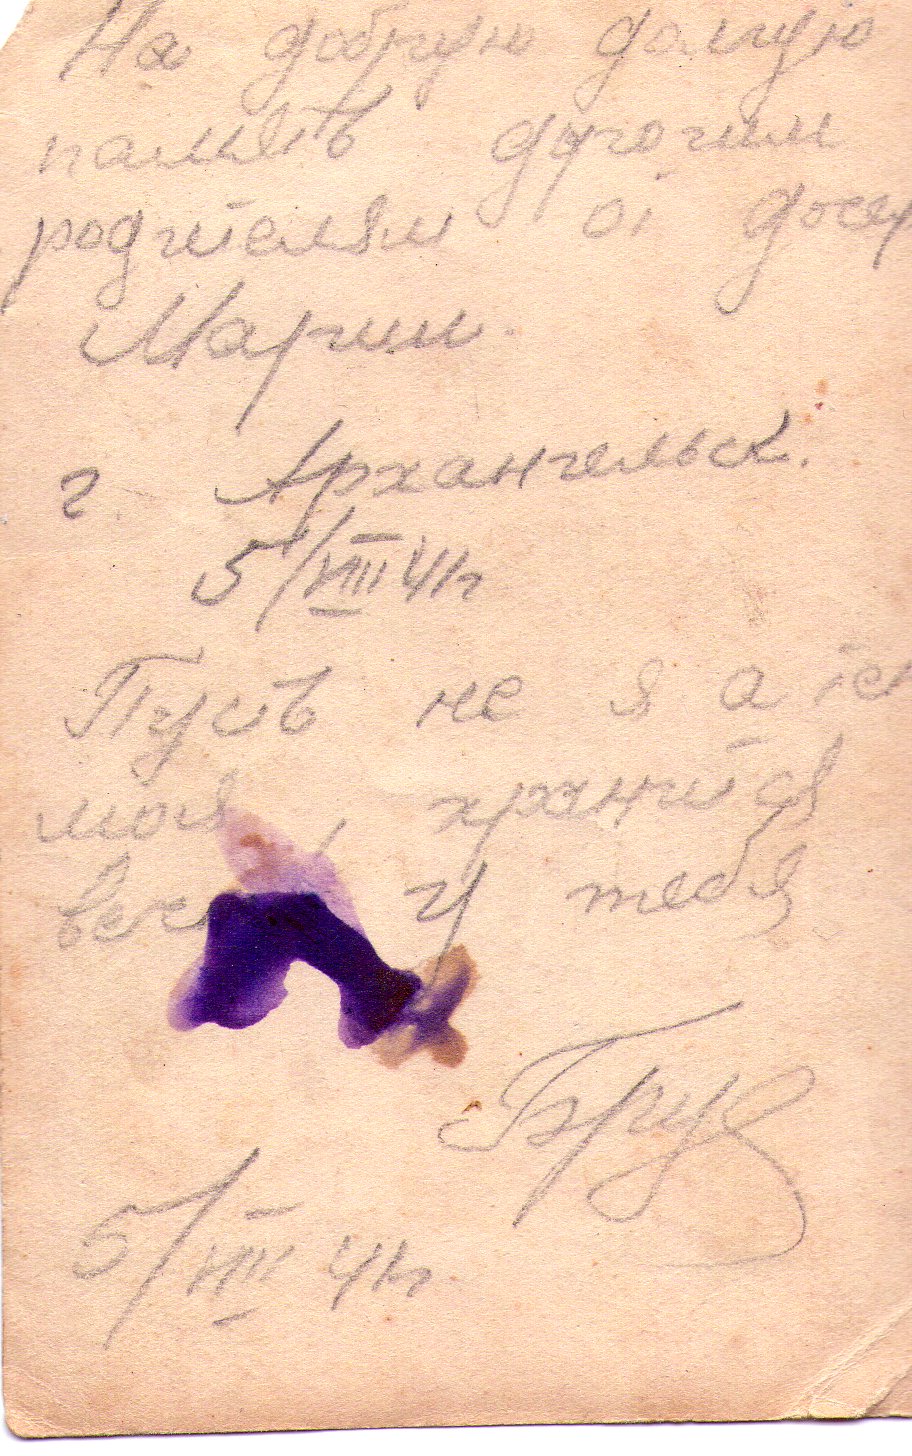 На добрую долгую
память дорогим
родителям от
Марии.
г. Архангельск.
5/VIII 41г
Пусть не я а
моя, хранится
у тебя
5/VIII 41г.